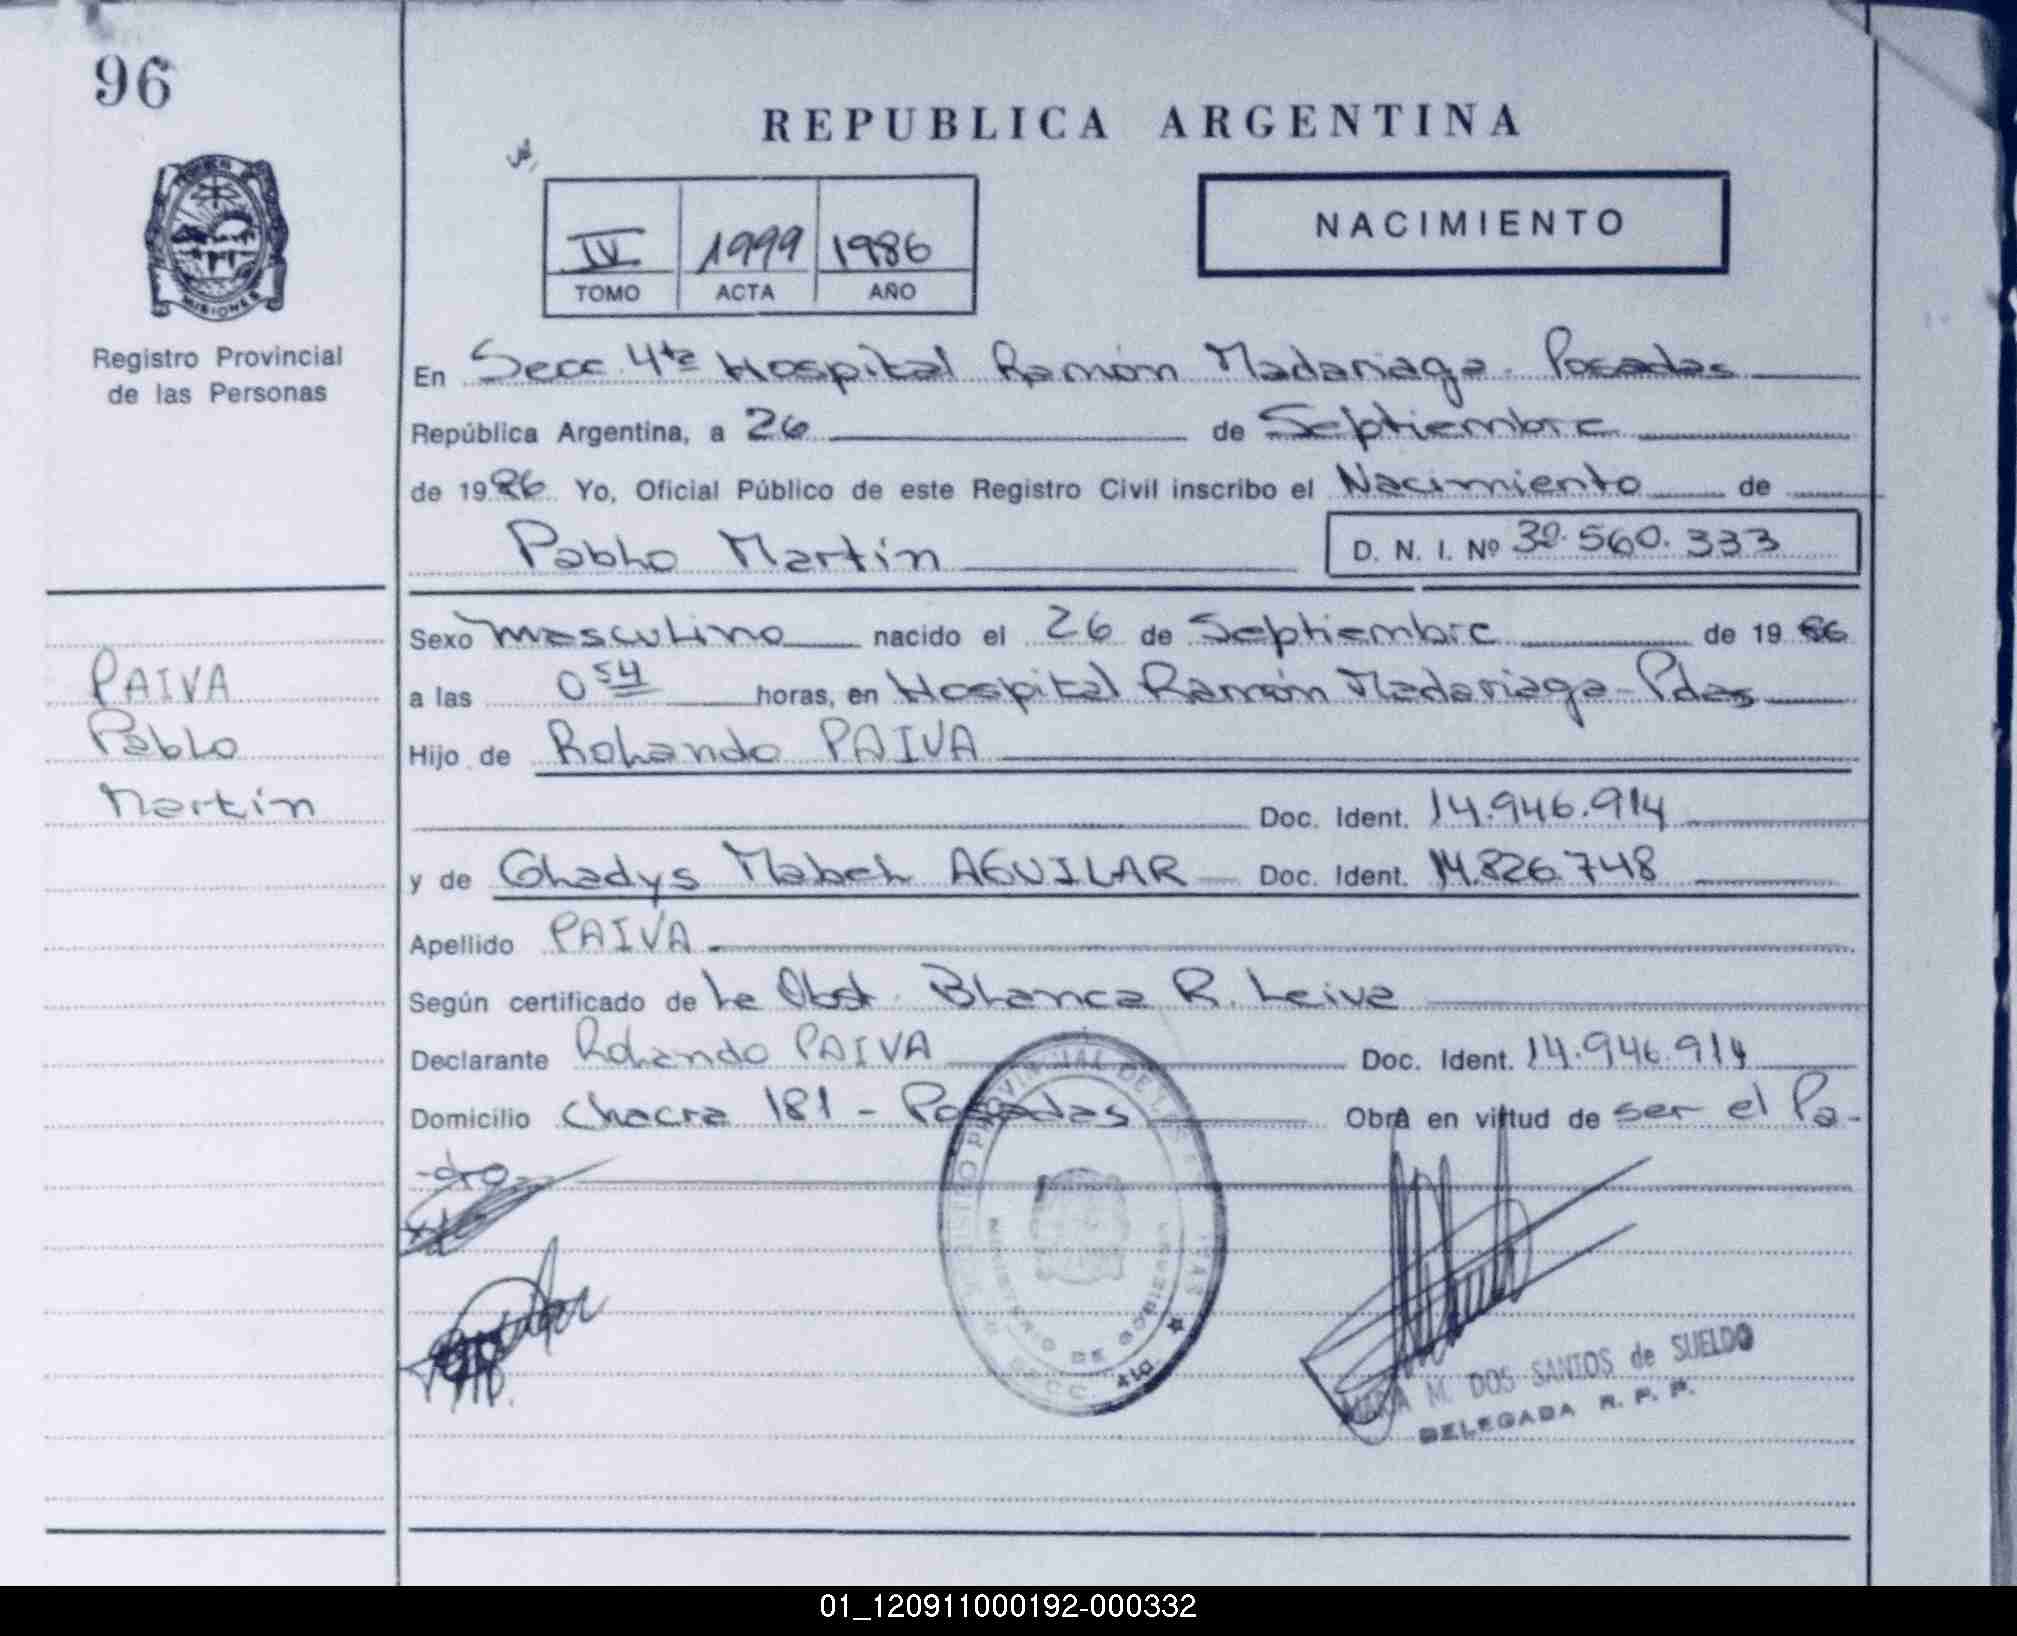 96
REPUBLICA ARGENTINA
MISIONES
Registro Provincial
de las Personas
IV 1999 1986
TOMO ACTA AÑO
NACIMIENTO
En Secc. 4ta Hospital Ramón Madariaga - Posadas
República Argentina, a 26 de Septiembre
de 1986 Yo, Oficial Público de este Registro Civil inscribo el Nacimiento de
Pablo Martín D. N. I. Nº 32.560.333
Sexo masculino nacido el 26 de Septiembre de 1986
a las 0 54 horas, en Hospital Ramón Madariaga - Pdas
Hijo de Rolando PAIVA
Doc. Ident. 14.946.914
y de Gladys Mabel AGUILAR Doc. Ident. 14.826.748
Apellido PAIVA
Según certificado de La Obst. Blanca R. Leiva
Declarante Rolando PAIVA Doc. Ident. 14.946.914
Domicilio Chacra 181 - Posadas Obra en virtud de ser el Pa-
-dre
PAIVA
Pablo
Martín
MINISTERIO DE GOBIERNO
SECC. 4ta
MARIA M. DOS SANTOS de SUELDO
DELEGADA R. P. P.
01_120911000192-000332